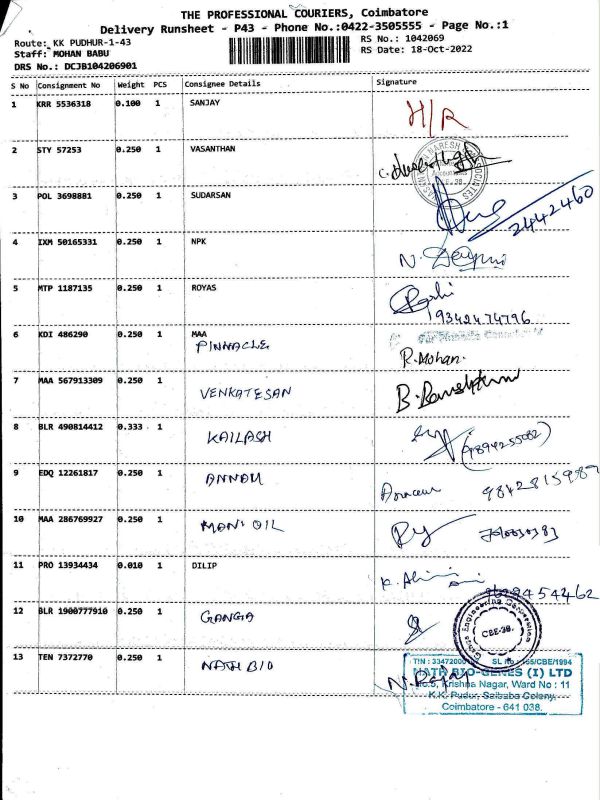 THE PROFESSIONAL COURIERS, Coimbatore
Delivery Runsheet - P43 - Phone No.:0422-3505555 - Page No.:1
Route: KK PUDHUR-1-43
RS No.: 1042069
Staff: MOHAN BABU
RS Date: 18-Oct-2022
DRS No.: DCJB104206901
S No Consignment No Weight PCS Consignee Details Signature
1 KRR 5536318 0.100 1 SANJAY H/R
2 STY 57253 0.250 1 VASANTHAN
3 POL 3698881 0.250 1 SUDARSAN 2442460
4 IXM 50165331 0.250 1 NPK
5 MTP 1187135 0.250 1 ROYAS
9342474796
6 KDI 486290 0.250 1 MAA
PINNACLE
R.Mohan.
7 MAA 567913309 0.250 1
VENKATESAN
8 BLR 490814412 0.333 1
KAILASH
9 EDQ 12261817 0.250 1
ANNAM
10 MAA 286769927 0.250 1
MANI OIL
11 PRO 13934434 0.010 1 DILIP
12 BLR 1900777910 0.250 1
GANGA
CBE-38.
13 TEN 7372770 0.250 1
NATH BIO
SL No : 165/CBE/1994
NATH BIO-GENES (I) LTD
No.5, Krishna Nagar, Ward No : 11
K.K. Pudur, Saibaba Colony,
Coimbatore - 641 038.